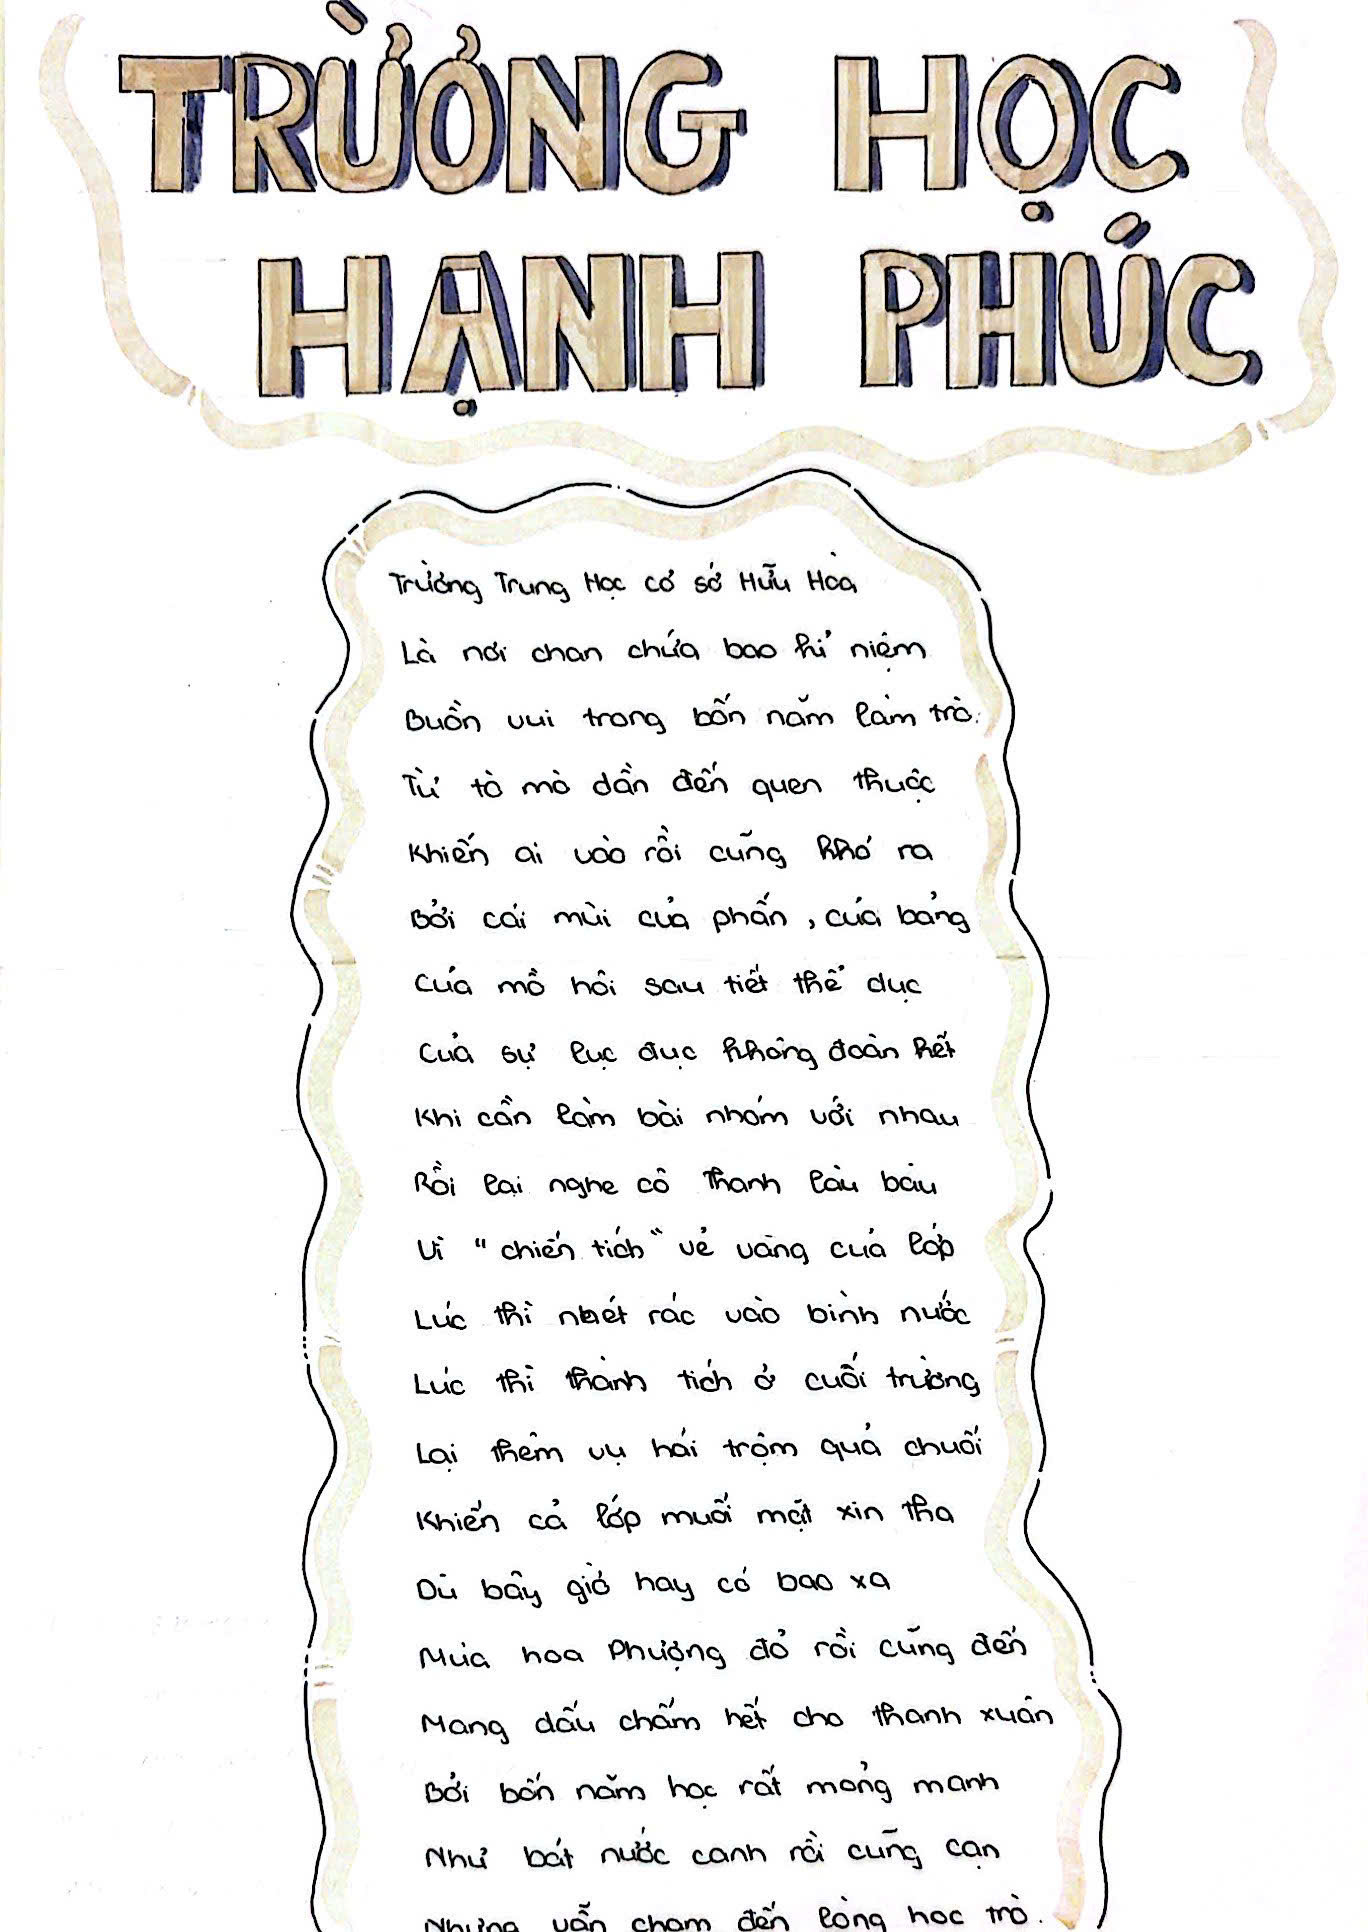 TRƯỜNG HỌC
HẠNH PHÚC
Trường Trung Học cơ sở Hữu Hòa
Là nơi chan chứa bao kỉ niệm
Buồn vui trong bốn năm làm trò.
Từ tò mò dần đến quen thuộc
Khiến ai vào rồi cũng khó ra
Bởi cái mùi của phấn, của bảng
Của mồ hôi sau tiết thể dục
Của sự lục đục không đoàn kết
Khi cần làm bài nhóm với nhau
Rồi lại nghe cô Thanh làu bàu
Vì "chiến tích" vẻ vang của lớp
Lúc thì nhét rác vào bình nước
Lúc thì thành tích ở cuối trường
Lại thêm vụ hái trộm quả chuối
Khiến cả lớp muối mặt xin tha
Dù bây giờ hay có bao xa
Mùa hoa Phượng đỏ rồi cũng đến
Mang dấu chấm hết cho thanh xuân
Bởi bốn năm học rất mỏng manh
Như bát nước canh rồi cũng cạn
Nhưng vẫn chạm đến lòng học trò.